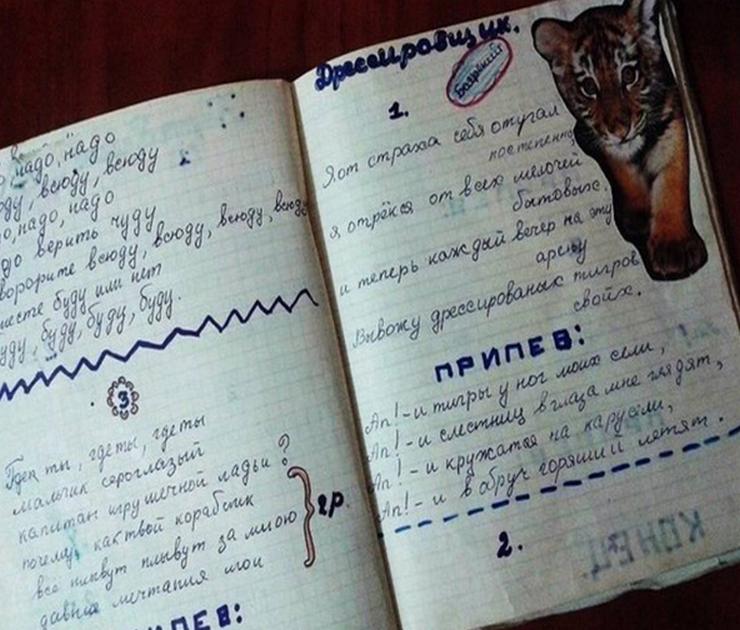 надо, надо
всюду, всюду
надо, надо
верить чуду
всюду, всюду, всюду, всюду
буду или нет
буду, буду, буду.
3
где ты, где ты, где ты
мальчик сероглазый
капитан игрушечной ладьи ?
почему как твой кораблик
всё плывут плывут за мною
давние мечтания мои
2р.
ПЕВ:
Дрессировщик.
Боярский
1.
Я от страха себя отучал
постепенно
я отрёкся от всех мелочей
бытовых.
и теперь каждый вечер на эту
арену
Вывожу дрессированых тигров
своих.
ПРИПЕВ:
Ап! - и тигры у ног моих сели,
Ап! - и с лестниц в глаза мне глядят,
Ап! - и кружатся на карусели,
Ап! - и в обруч горящий летят.
2.
КОНЕЦ